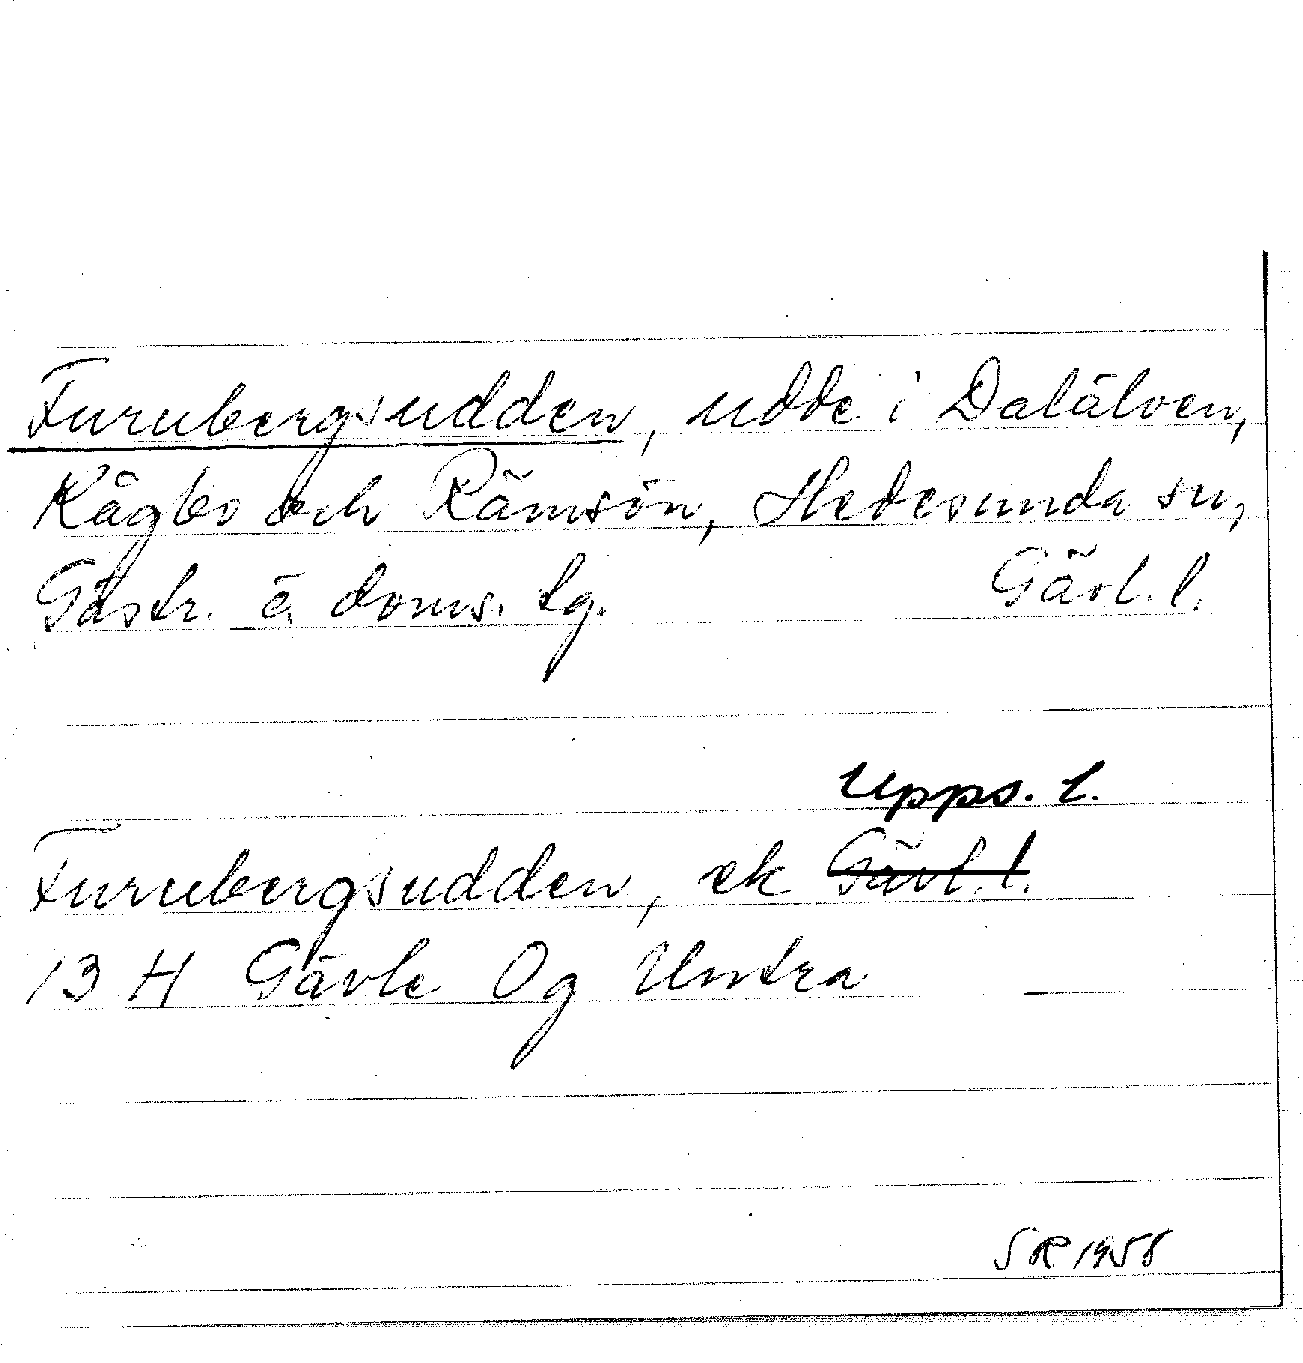 Furubergsudden, udde i Dalälven,
Kågbo och Rämsön, Hedesunda sn,
Gästr. ö. doms. tg. Gävl. l.
Upps. l.
Furubergsudden, ek Gävl. l.
13 H Gävle Og Untra
SR 1958